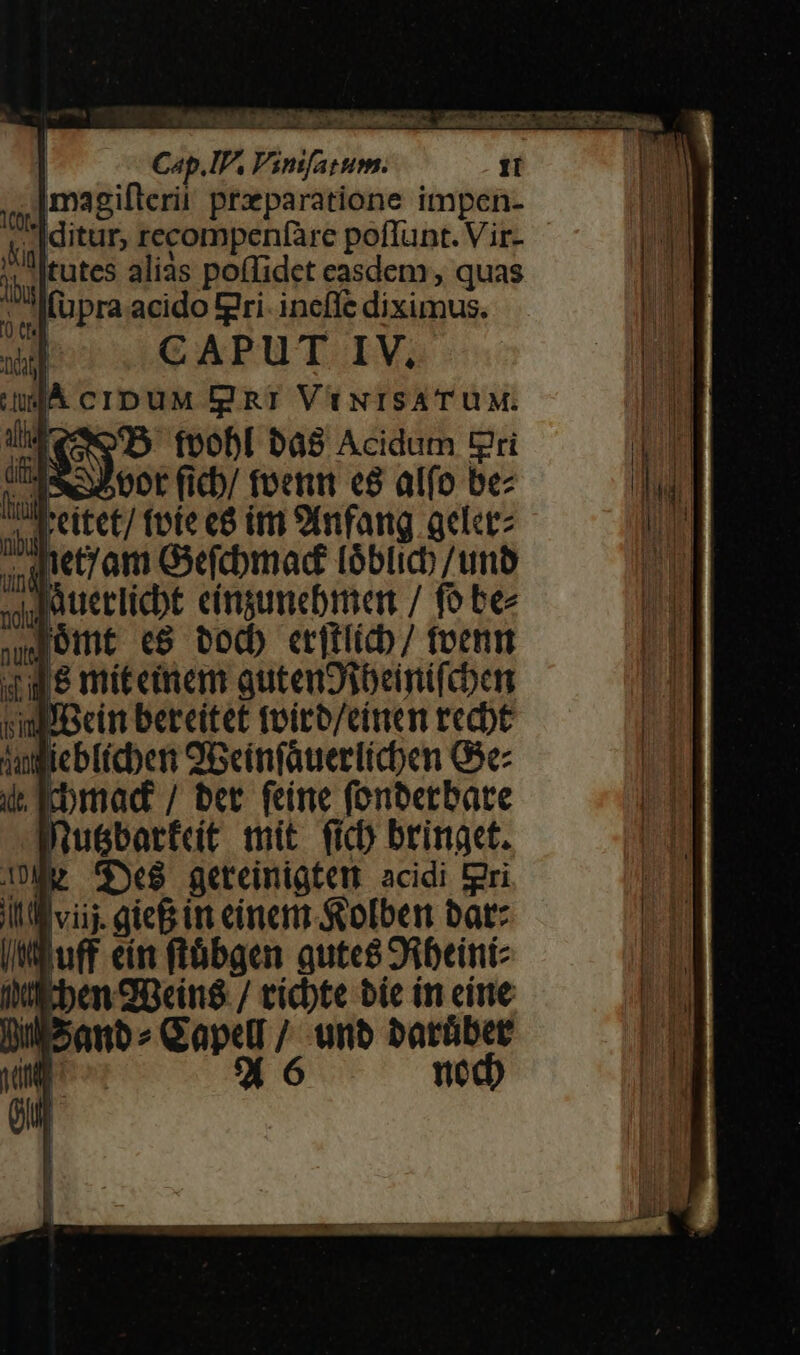 Cap. IV. Vinisatum. 11
magiſterii præparatione impen-
ditur, recompenſàre poſſunt. Vir-
tutes aliàs poſſidet easdem, quas
ſupra acido 🜿ri ineſſe diximus.
CAPUT IV.
ACIDUM 🜿RI VINISATUM.
OB wohl das Acidum 🜿ri
vor ſich/ wenn es alſo be-
reitet/ wie es im Anfang geler-
net/ am Geſchmack loͤblich/ und
ſaͤuerlicht einzunehmen / ſo be-
koͤmt es doch erſtlich/ wenn
es mit einem guten Rheiniſchen
Wein bereitet wird/ einen recht
lieblichen Weinſaͤuerlichen Ge-
ſchmack / der ſeine ſonderbare
Nutzbarkeit mit ſich bringet.
Des gereinigten acidi 🜿ri
viij. gieß in einem Kolben dar-
uff ein ſtuͤbgen gutes Rheini-
ſchen Weins / richte die in eine
Sand-Capell / und daruͤber
A 6 noch